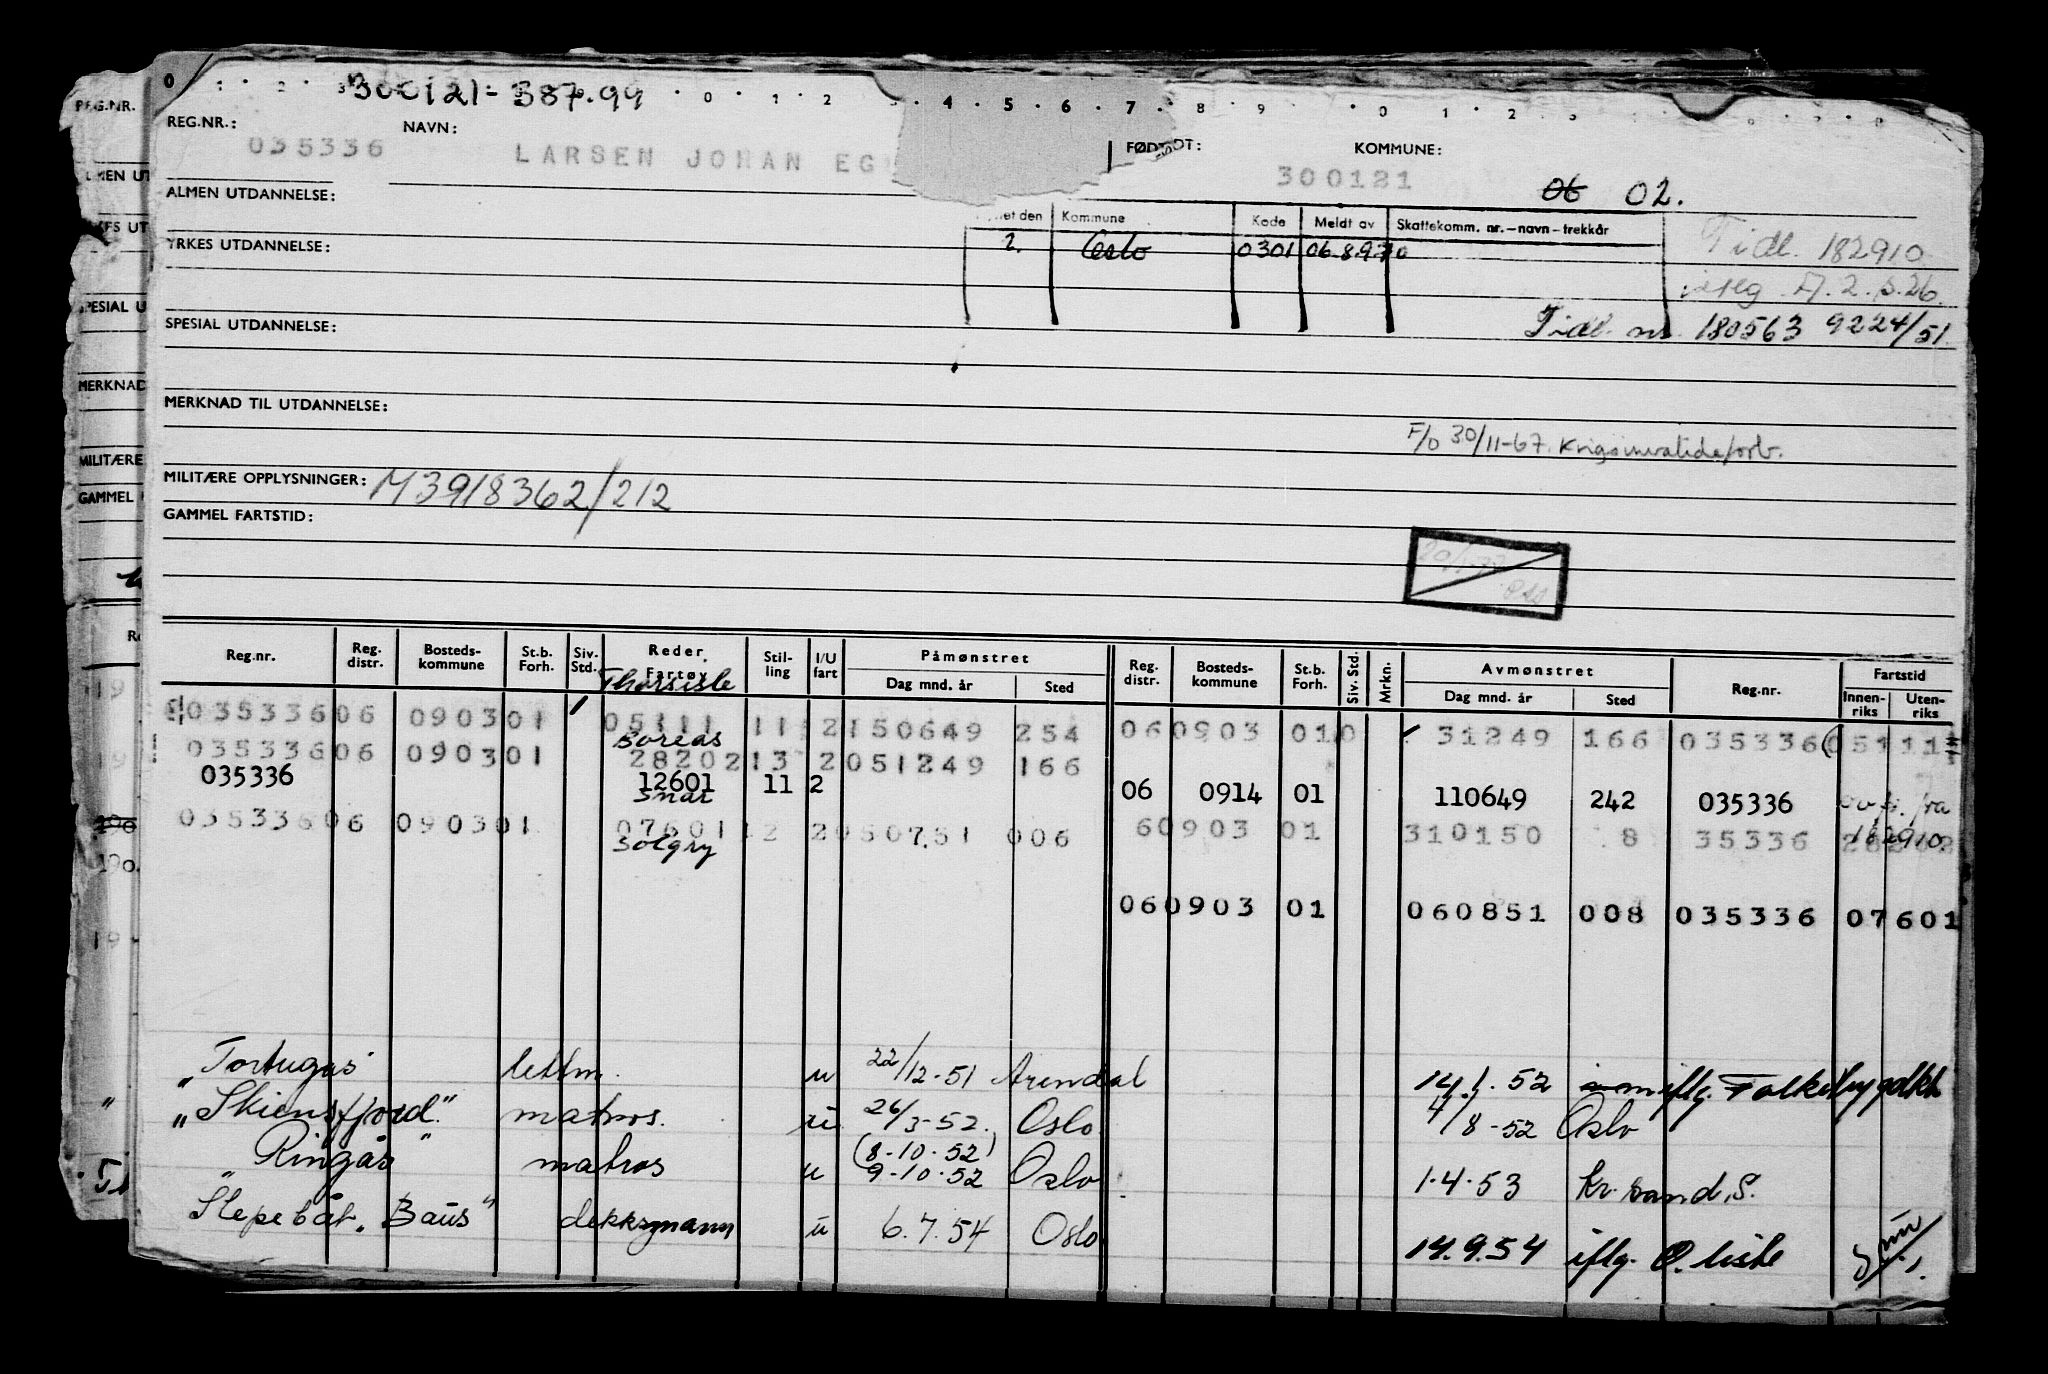 300121-387.99
REG.NR.: 035336 NAVN: LARSEN JOHAN EG FØDT: 300121 KOMMUNE: 06 02.
ALMEN UTDANNELSE:
Kommune Kode Meldt av Skattekomm. nr.-navn-trekkår
YRKES UTDANNELSE: 2. Oslo 0301 06.8.970 Tidl. 182910
A. 2. s. 26.
SPESIAL UTDANNELSE: Tidl. nr. 180563 9224/51.
MERKNAD TIL UTDANNELSE:
F/O 30/11-67. Krigsinvalideforb.
MILITÆRE OPPLYSNINGER: M3918362/212
GAMMEL FARTSTID:
Reg.nr. Reg. distr. Bosteds-kommune St.b. Forh. Siv. Std. Reder. Fartøy Stil-ling I/U fart Påmønstret Dag mnd. år Sted Reg. distr. Bosteds-kommune St.b. Forh. Siv. Std. Mrkn. Avmønstret Dag mnd. år Sted Reg.nr. Fartstid Innen-riks Uten-riks
Thorsisle
035336 06 0903 01 05111 11 2 150649 254 06 0903 01 0 31249 166 035336 05111
Boreas
035336 06 0903 01 28202 13 2 051249 166
035336 12601 11 2 06 0914 01 110649 242 035336 fra
Snar
035336 06 0903 01 07601 12 2 050751 006 6 0903 01 310150 8 35336 182910
Solgry
06 0903 01 060851 008 035336 07601
"Tortugas" lettm. u 22/12-51 Arendal 14.1.52 iflg. Folkebygdkt
"Skiensfjord" matros. u 26/3-52. Oslo 4/8-52 Oslo
"Ringås" matros u (8-10-52) 9-10-52 Oslo 1-4-53 Kr.sand.S.
Slepebåt "Baus" dekksmann u 6.7.54 Oslo 14.9.54 iflg. O. liste